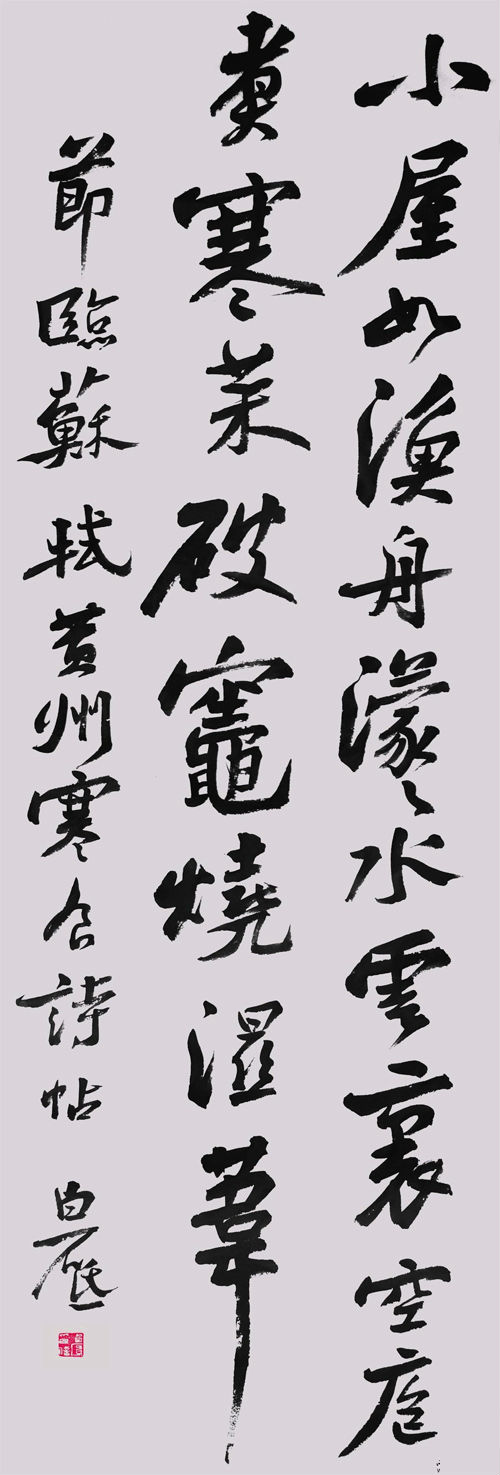 小屋如漁舟濛々水雲裏空庖
煮寒菜破竈燒濕葦
節臨蘇軾黃州寒食詩帖 白砥